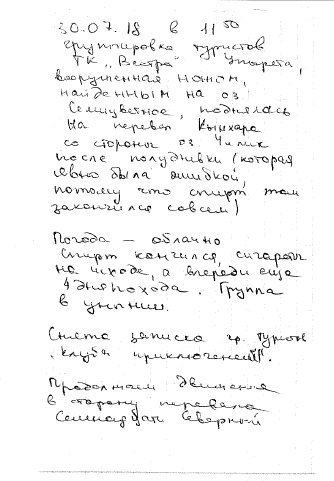 30.07.18 в 11⁵⁰
группировка туристов
ТК „Вестра"
вооруженная ножом,
найденным на оз
Семицветное, поднялась
на перевал Кынхара
со стороны оз. Чилик
после полудневки (которая
явно была ошибкой,
потому что спирт там
закончился совсем)
Погода – облачно
Спирт кончился, сигареты
на исходе, а впереди еще
4 дня похода. Группа
в унынии.
Снята записка гр. туристов
"клуба приключений".
Продолжаем движение
в сторону перевала
Семнадцати Северный